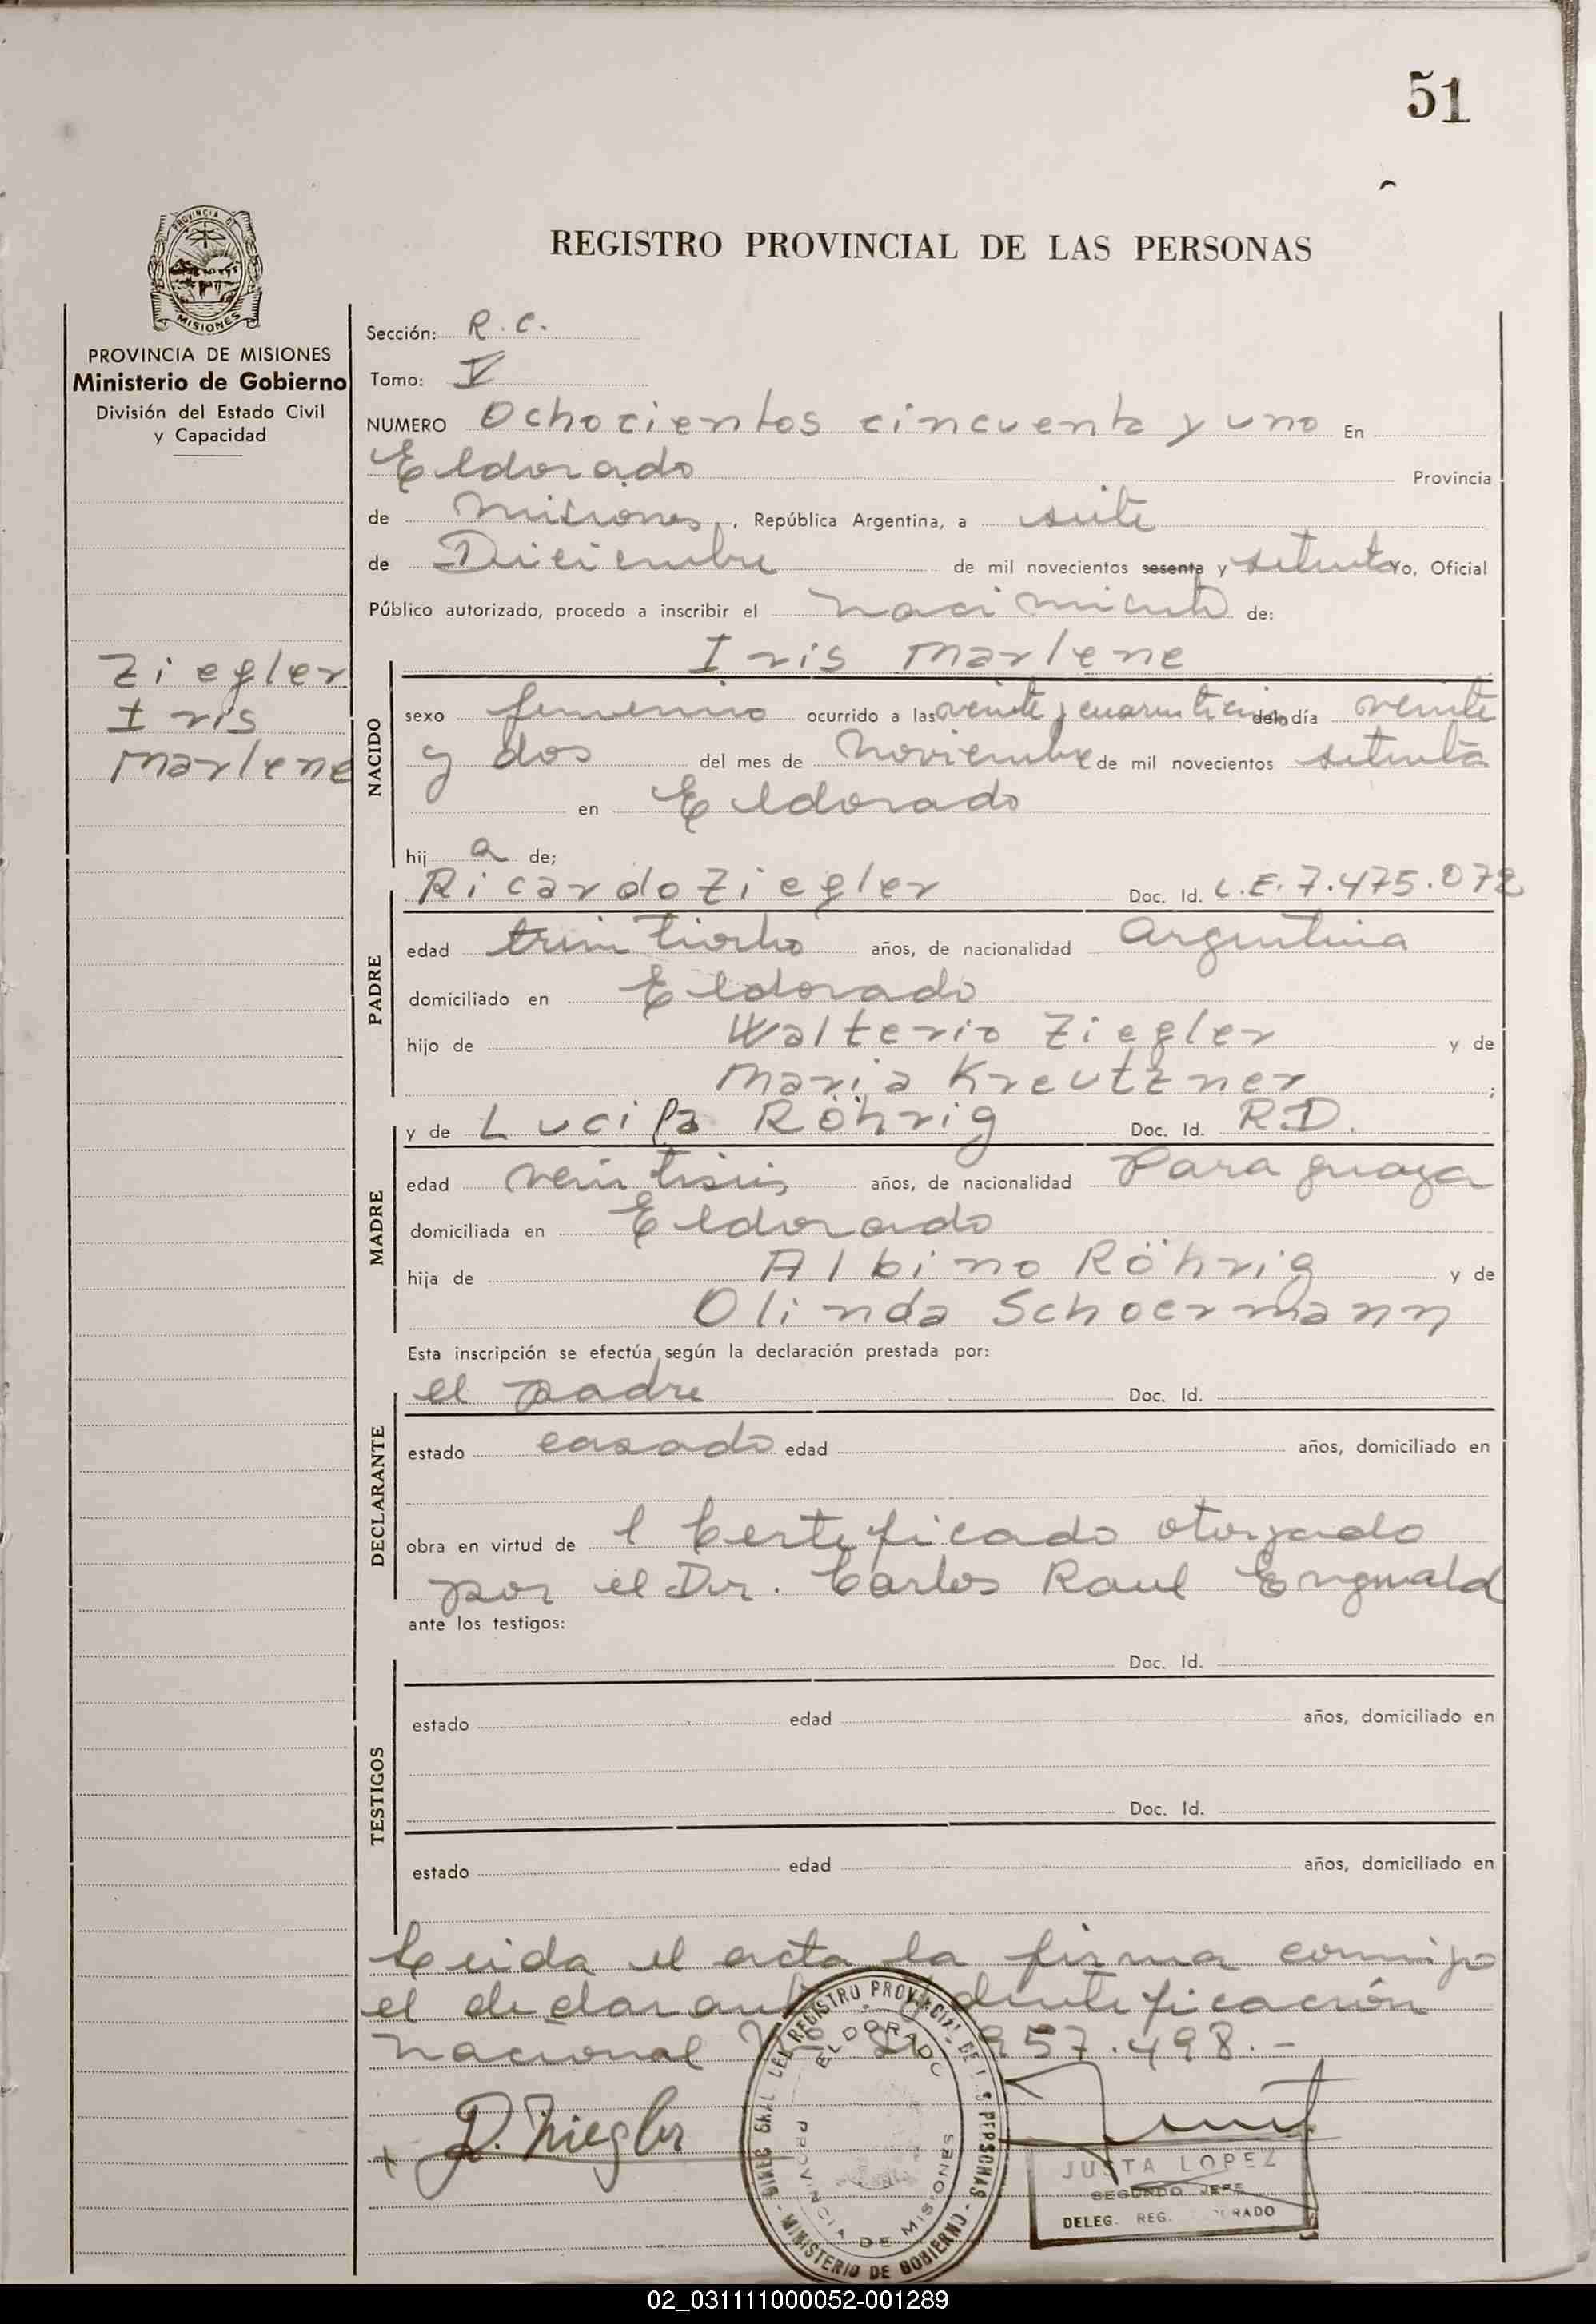 51
REGISTRO PROVINCIAL DE LAS PERSONAS
PROVINCIA DE
MISIONES
PROVINCIA DE MISIONES
Ministerio de Gobierno
División del Estado Civil
y Capacidad
Ziegler
Iris
Marlene
Sección: R. C.
Tomo: V
NUMERO Ochocientos cincuenta y uno En
Eldorado Provincia
de Misiones, República Argentina, a siete
de Diciembre de mil novecientos sesenta y setenta yo, Oficial
Público autorizado, procedo a inscribir el nacimiento de:
NACIDO
Iris Marlene
sexo femenino ocurrido a las veinte y cuarenticinco del día veinte
y dos del mes de Noviembre de mil novecientos setenta
en Eldorado
hij a de;
PADRE
Ricardo Ziegler Doc. Id. L.E. 7.475.072
edad treintiocho años, de nacionalidad Argentina
domiciliado en Eldorado
hijo de Walterio Ziegler y de
Maria Kreutzner ;
MADRE
y de Lucila Röhrig Doc. Id. R.D.
edad veintiseis años, de nacionalidad Paraguaya
domiciliada en Eldorado
hija de Albino Röhrig y de
Olinda Schoermann
Esta inscripción se efectúa según la declaración prestada por:
DECLARANTE
el padre Doc. Id.
estado casado edad años, domiciliado en
obra en virtud de l Certificado otorgado
por el Dr. Carlos Raul Engwald
ante los testigos:
TESTIGOS
Doc. Id.
estado edad años, domiciliado en
Doc. Id.
estado edad años, domiciliado en
Leida el acta la firma conmigo
el declarante. Identificación
Nacional 957.498.-
R. Ziegler
DIREC. GRAL. DEL REGISTRO PROVINCIAL DE LAS PERSONAS - MINISTERIO DE GOBIERNO -
ELDORADO
PROVINCIA DE MISIONES
JUSTA LOPEZ
SEGUNDO JEFE
DELEG. REG. ELDORADO
02_031111000052-001289